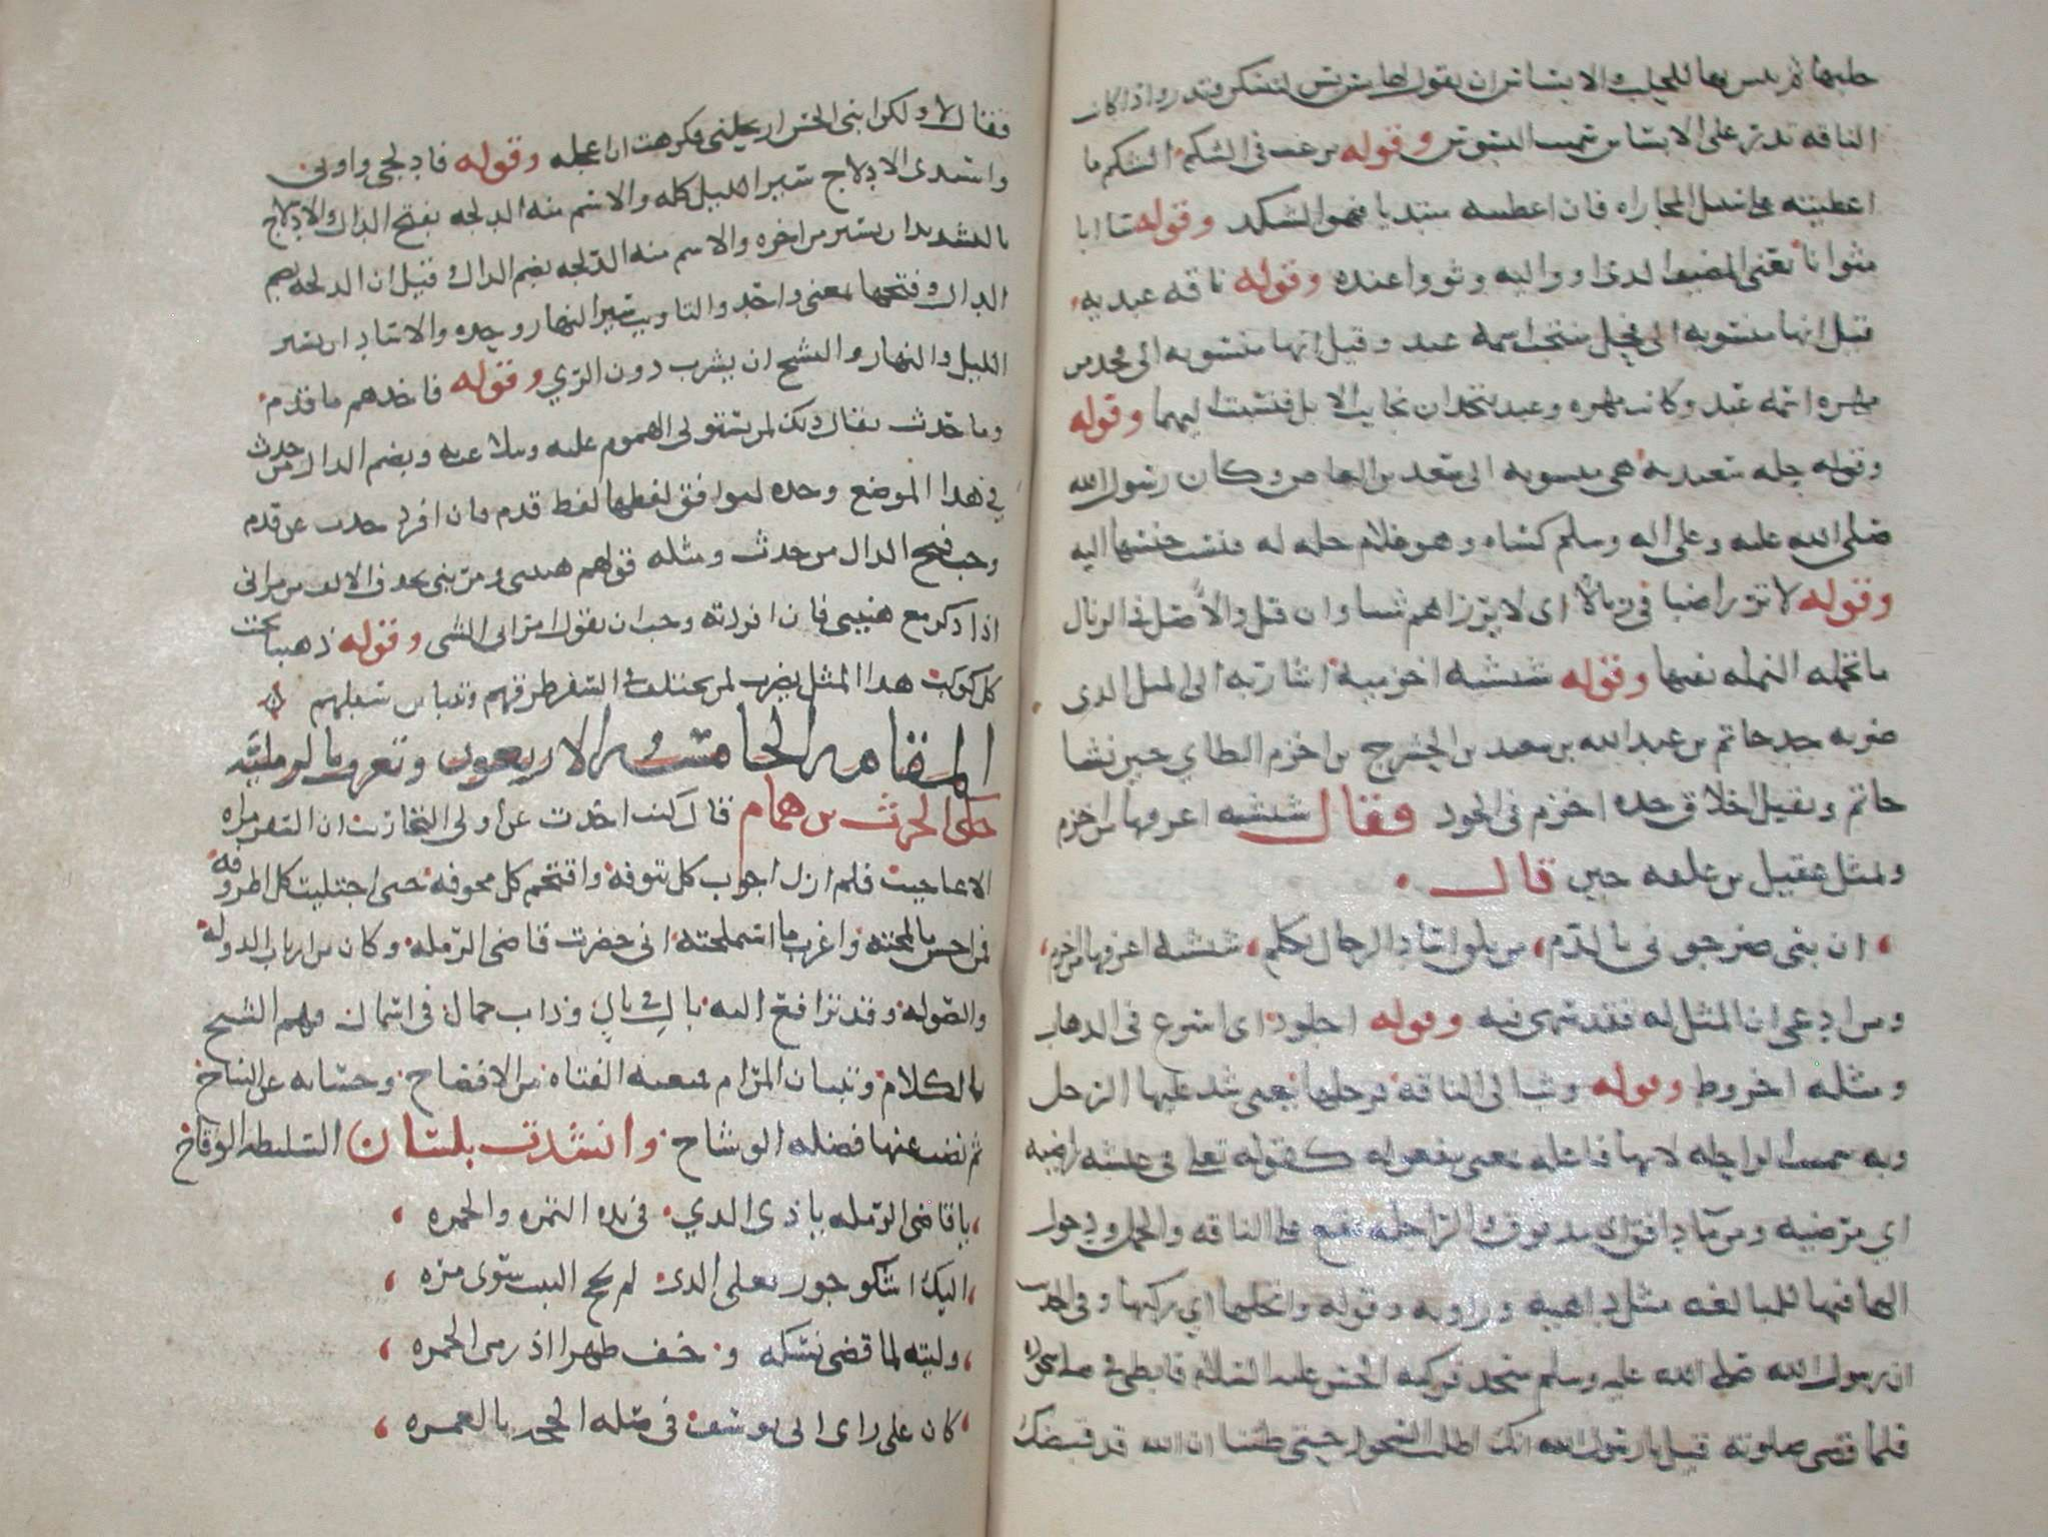 حلبها ثم يبس بها للحلب والابساس ان يقول لها بس بس لتسكن وتدر واذا كانت
الناقه تدر على الابساس سميت البسوس وقوله يرغب في الشكم الشكم ما
اعطيته على سبيل المجازاه فان اعطيته مبتديا فهو الشكد وقوله سا ابا
مثوانا يعني المضيف الذي اووا اليه وثووا عنده وقوله ناقه عيديه
قيل انها منسوبه الى فحل منجب اسمه عيد وقيل انها منسوبه الى فخذ من
مهره اسمه عيد وكانت مهره وعيد يتخذان نجايب الابل فنسبت اليهما وقوله
وقوله حله سعيديه هي منسوبه الى سعيد بن العاص وكان رسول الله
صلى الله عليه وعلى اله وسلم كساه وهو غلام حله له فنسب جنسها اليه
وقوله لا ترزا ضيفا في زبالا اي لا يرزاهم شيا وان قل والاصل في الزبال
ما تحمله النمله بفيها وقوله شنشنه اخزميه اشار به الى المثل الذي
ضربه جد حاتم بن عبد الله بن سعد بن الحشرج بن اخزم الطاي حين نشا
حاتم وتقيل اخلاق جده اخزم في الجود فقال شنشنه اعرفها من اخزم
وتمثل عقيل بن علفه حين قال
ان بني ضرجوني بالدم من يلق اساد الرجال يكلم شنشنه اعرفها من اخزم
ومن ادعى ان المثل له فقد سهى فيه وقوله اجلوذ اي اسرع في الذهاب
ومثله اخروط وقوله وثب الى الناقه فرحلها يعني شد عليها الرحل
وبه سميت الراحله لانها فاعله بمعنى مفعوله كقوله تعلى في عيشه راضيه
اي مرضيه ومن ماء دافق اي مدفوق والراحله تقع على الناقه والجمل ودخول
الها فيها للمبالغه مثل داهيه وراويه وقوله وارتحلها اي ركبها وفي الحديث
ان رسول الله صلى الله عليه وسلم سجد فركبه الحسن عليه السلام فابطى في
فلما قضى صلوته قيل يا رسول الله انك اطلت السجود حتى ظننا ان الله قد قبضك
فقال لا ولكن ابني الحسن ارتحلني فكرهت ان اعجله وقوله فادلجي واوبي
واسدي الادلاج سير الليل كله والاسم منه الدلجه بفتح الدال والادلاج
بالتشديد ان يسير من اخره والاسم منه الدلجه بضم الدال وقيل ان الدلجه بضم
الدال وفتحها بمعنى واحد والتاويب سير النهار وحده والاساد ان يسير
الليل والنهار والنشح ان يشرب دون الري وقوله فاخذهم ما قدم
وما حدث يقال ذلك لمن يستولي الهموم عليه وبضم الدال من حدث
في هذا الموضع وحده ليوافق لفظها لفظ قدم فان افرد حدث عن قدم
وجب فتح الدال من حدث ومثله قولهم هنيني ومريني بحذف الالف من مراني
اذا ذكر مع هنيني فان افردته وجب ان يقول امراني الشي وقوله ذهبنا تحت
كل كوكب هذا المثل يضرب لمن يختلف في السفر طرقهم وتباين سبلهم
المقامه الخامسه والاربعون وتعرف بالرمليه
حكى الحرث بن همام قال كنت اخذت عن اولي التجارب ان السفر مراه
الاعاجيب فلم ازل اجوب كل تنوفه واقتحم كل مخوفه حتى اجتليت كل اطروفه
فمن احسن ما لمحته واغرب ما استملحته اني حضرت قاضي الرمله وكان من ارباب الدوله
والصوله وقد ترافع اليه بال في بال وذات جمال في اسمال فهم الشيخ
بالكلام وتبيان المرام فمنعته الفتاه من الافصاح وخسأته عن النباح
ثم نضت عنها فضله الوشاح وانشدت بلسان السليطه الوقاح
يا قاضي الرمله يا ذى الذي في يده التمره والجمره
اليك اشكو جور بعلي الذي لم يحج البيت سوى مره
وليته لما قضى نسكه وخف ظهرا اذ رمى الجمره
كان على راى ابي يوسف في صله الحجه بالعمره